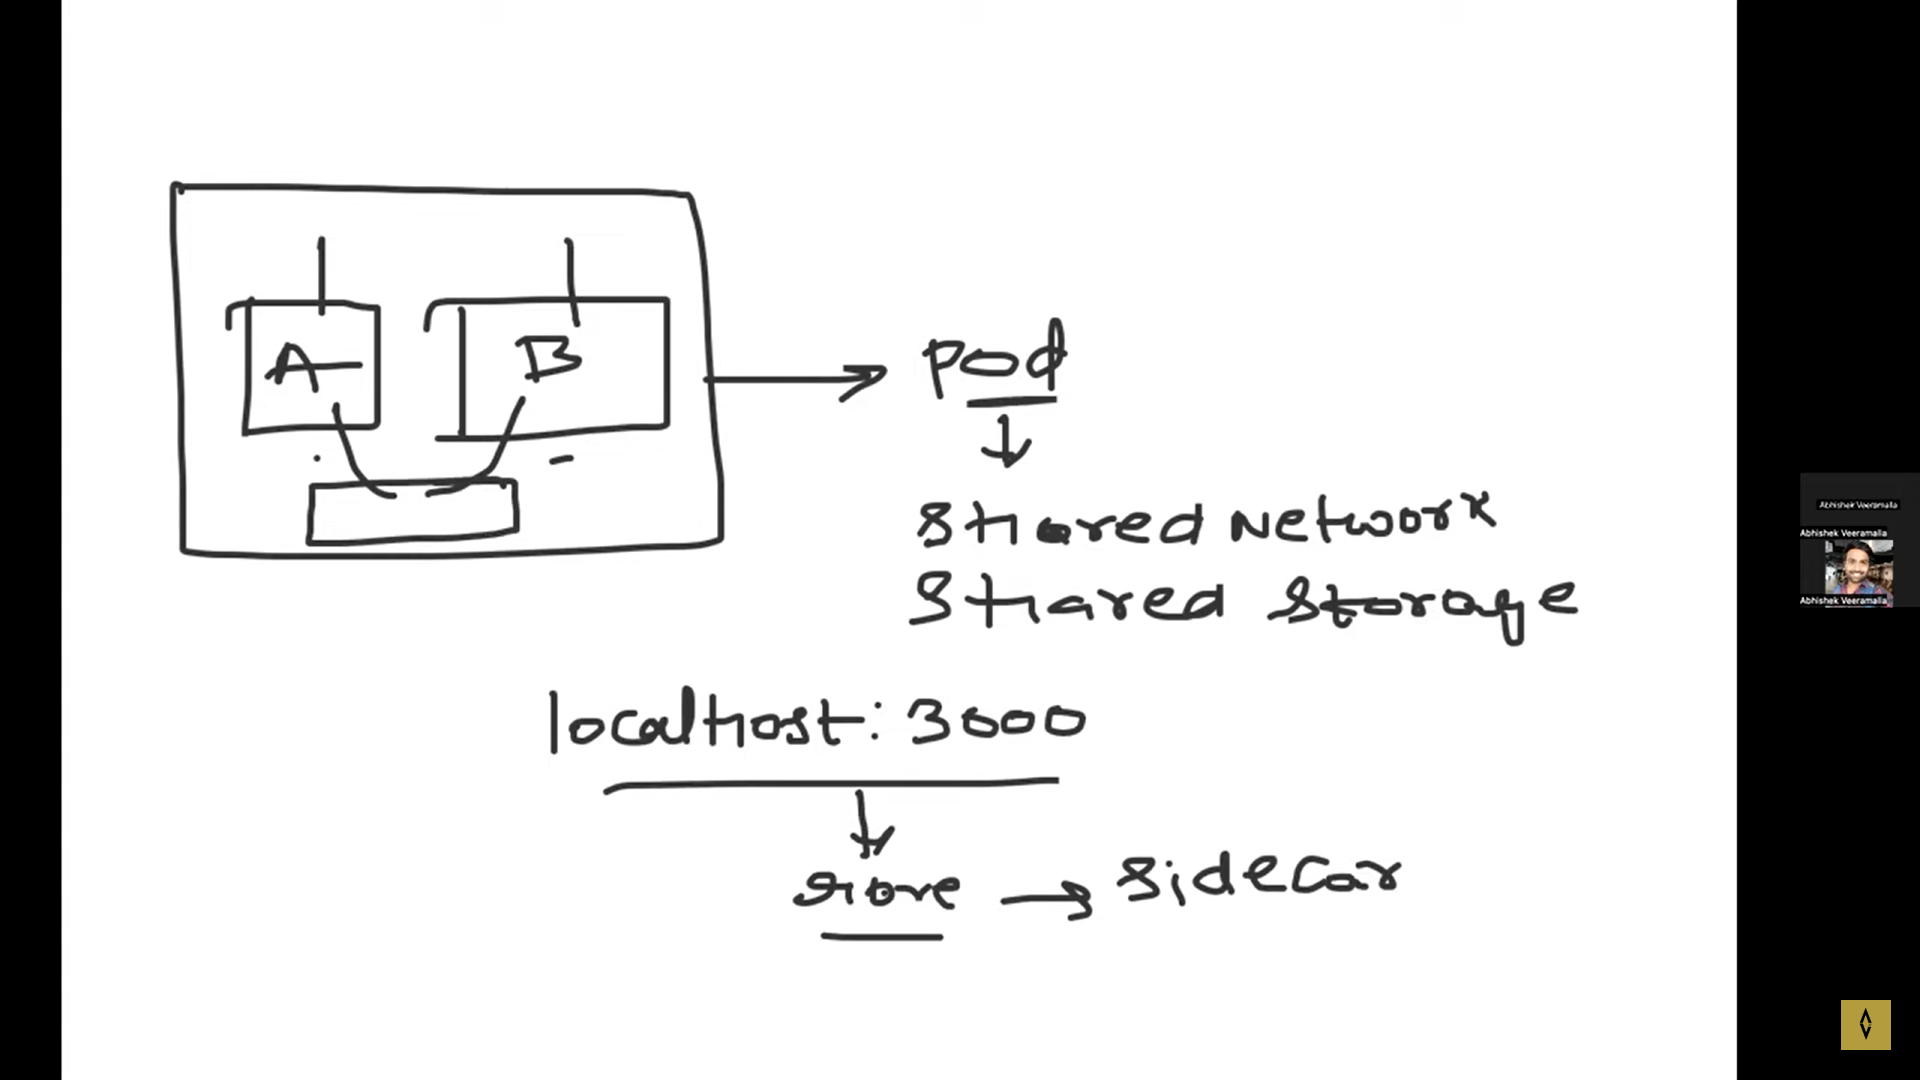 A B
pod
Shared Network
Shared Storage
localhost:3000
→ sidecar
Abhishek Veeramalla
Abhishek Veeramalla
Abhishek Veeramalla